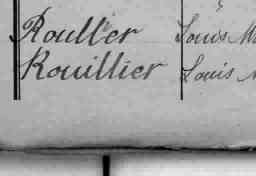 Rouller Louis M
Rouillier Louis